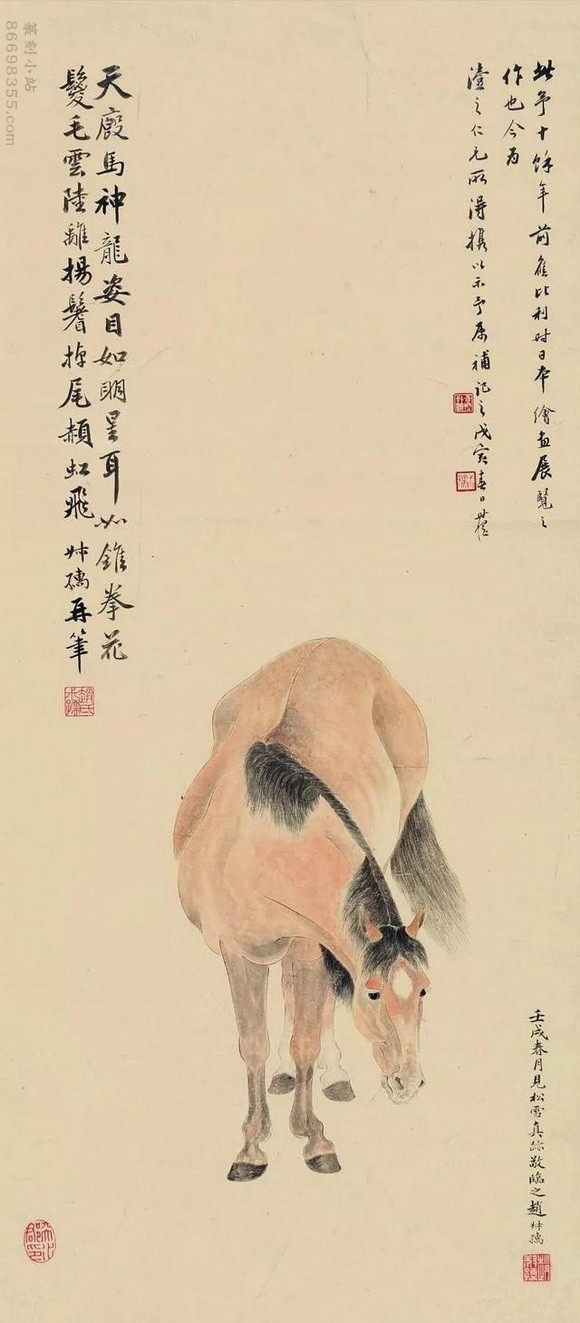 此予十餘年前應比利時日本繪畫展覽之
作也今為
澧之仁兄所得攜以示予屬補記之戊寅春日
天廄馬神龍姿目如明星耳如錐拳花
鬉毛雲陸離揚鬐掉尾頳虹飛 艸碃再筆
壬戌春月見松雪真跡敬臨之趙艸碃
篆刻小站
86698355.com